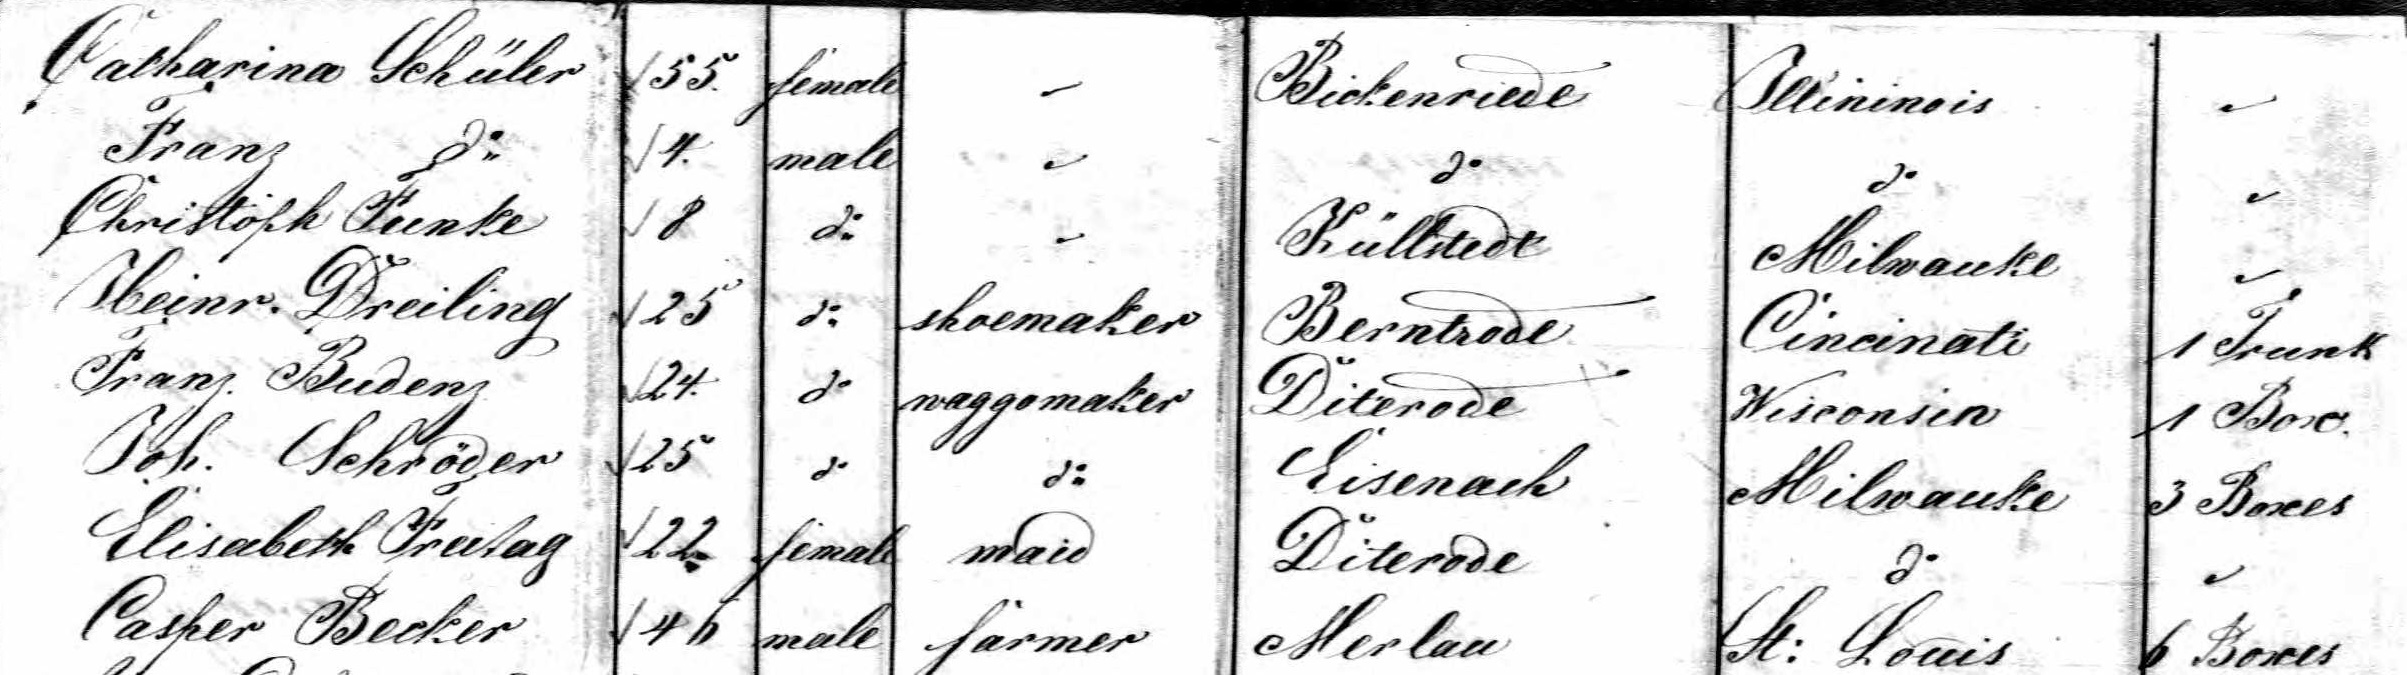 Catharina Schüler √ 55. female " Bickenriede Illininois "
Franz do √ 4. male " do do "
Christoph Funke √ 8 do " Küllstedt Milwauke "
Heinr. Dreiling √ 25 do shoemaker Berntrode Cincinati 1 Trunk
Franz Budenz √ 24. do waggomaker Diterode Wisconsin 1 Box.
Joh. Schröder √ 25 do do Eisenach Milwauke 3 Boxes
Elisabeth Freitag √ 22 female maid Diterode do "
Casper Becker √ 46 male farmer Merlau St: Louis 6 Boxes